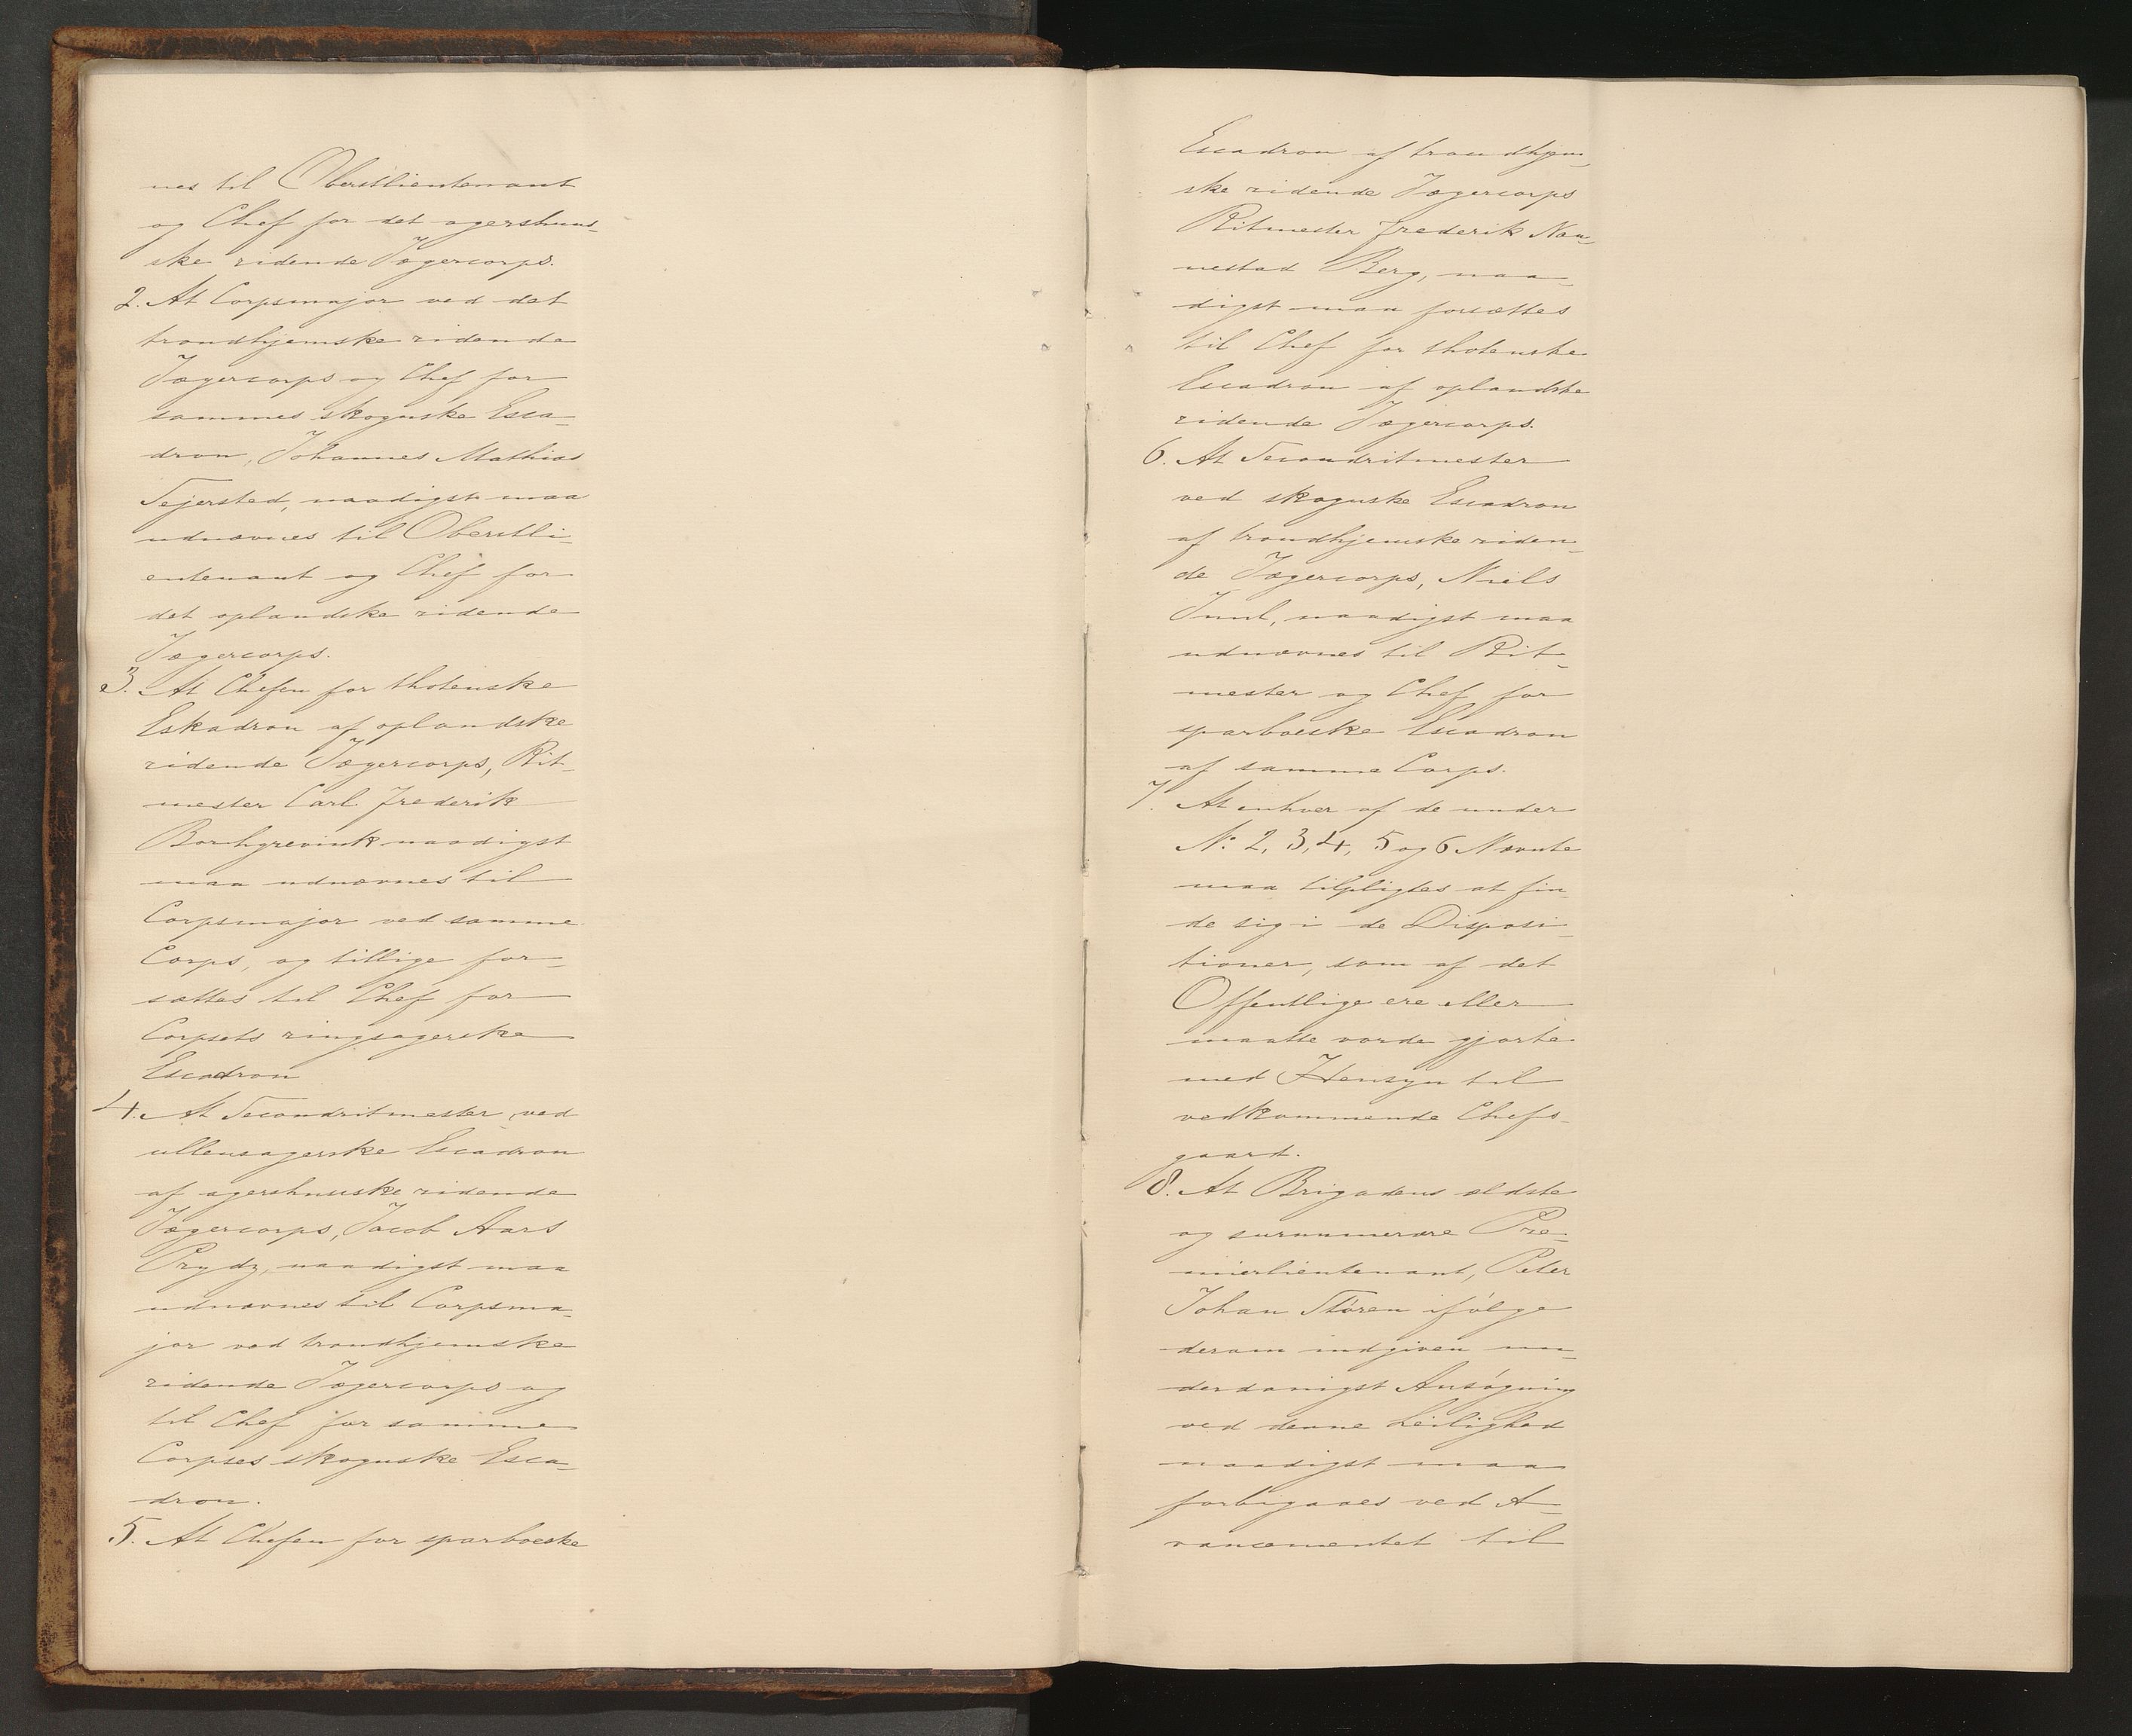 nes til Oberstlieutenant
og Chef for det agershuus-
ske ridende Jægercorps.
2. At Corpsmajor ved det
trondhjemske ridende
Jægercorps og Chef for
sammes skognske Esca-
dron, Johannes Mathias
Sejersted, naadigst maa
udnævnes til Oberstli-
eutenant og Chef for
det oplandske ridende
Jægercorps.
3. At Chefen for thotenske
Eskadron af oplandske
ridende Jægercorps, Rit-
mester Carl Frederik
Borhgrevink naadigst
maa udnævnes til
Corpsmajor ved samme
Corps, og tillige for-
sættes til Chef for
Corpsets ringsagerske
Escadron
4. At Secondritmester ved
ullensagerske Escadron
af agershuuske ridende
Jægercorps, Jacob Aars
Prydz, naadigst maa
udnævnes til Corpsma-
jor ved trondhjemske
ridende Jægercorps og
til Chef for samme
Corpses skognske Esca-
dron.
5. At Chefen for sparboeske
Escadron af trondhjem-
ske ridende Jægercorps
Ritmester Frederik Nan-
nestad Berg, naa-
digst maa forsættes
til Chef for thotenske
Escadron af oplandske
ridende Jægercorps.
6. At Secondritmester
ved skognske Escadron
af trondhjemske riden-
de Jægercorps, Niels
Juul, naadigst maa
udnævnes til Rit-
mester og Chef for
sparboeske Escadron
af samme Corps.
7. At enhver af de under
No 2, 3, 4, 5 og 6 Nævnte
maa tilpligtes at fin-
de sig i de Disposi-
tioner, som af det
Offentlige ere eller
maatte vorde gjorte
med Hensyn til
vedkommende Chefs-
gaard.
8. At Brigadens ældste
og surnumerære Pre-
mierlieutenant, Peter
Johan Støren ifølge
derom indgiven un-
derdanigst Ansøgning
ved denne Leilighed
naadigst maa
forbigaaes ved A-
vancementet til